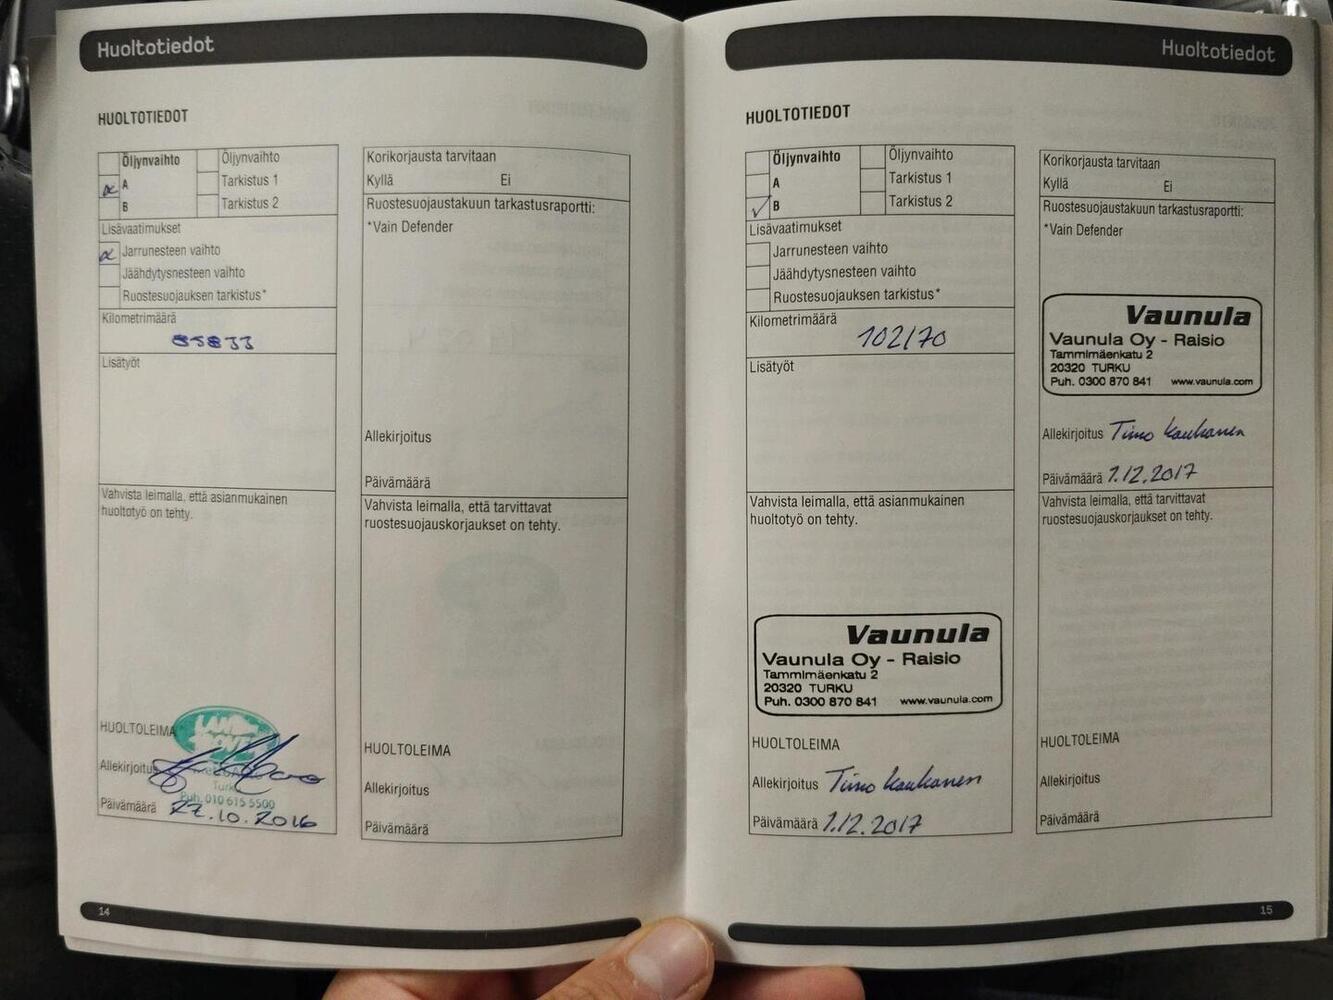 Huoltotiedot
HUOLTOTIEDOT
Öljynvaihto
A
B
Öljynvaihto
Tarkistus 1
Tarkistus 2
Lisävaatimukset
Jarrunesteen vaihto
Jäähdytysnesteen vaihto
Ruostesuojauksen tarkistus*
Kilometrimäärä
85833
Lisätyöt
Vahvista leimalla, että asianmukainen
huoltotyö on tehty.
HUOLTOLEIMA
Allekirjoitus
Turku
Puh. 010 615 5500
Päivämäärä 27.10.2016
Korikorjausta tarvitaan
Kyllä Ei
Ruostesuojaustakuun tarkastusraportti:
*Vain Defender
Allekirjoitus
Päivämäärä
Vahvista leimalla, että tarvittavat
ruostesuojauskorjaukset on tehty.
HUOLTOLEIMA
Allekirjoitus
Päivämäärä
14
Huoltotiedot
HUOLTOTIEDOT
Öljynvaihto
A
B
Öljynvaihto
Tarkistus 1
Tarkistus 2
Lisävaatimukset
Jarrunesteen vaihto
Jäähdytysnesteen vaihto
Ruostesuojauksen tarkistus*
Kilometrimäärä
102170
Lisätyöt
Vahvista leimalla, että asianmukainen
huoltotyö on tehty.
Vaunula
Vaunula Oy - Raisio
Tammimäenkatu 2
20320 TURKU
Puh. 0300 870 841 www.vaunula.com
HUOLTOLEIMA
Allekirjoitus Timo Kaukanen
Päivämäärä 1.12.2017
Korikorjausta tarvitaan
Kyllä Ei
Ruostesuojaustakuun tarkastusraportti:
*Vain Defender
Vaunula
Vaunula Oy - Raisio
Tammimäenkatu 2
20320 TURKU
Puh. 0300 870 841 www.vaunula.com
Allekirjoitus Timo Kaukanen
Päivämäärä 1.12.2017
Vahvista leimalla, että tarvittavat
ruostesuojauskorjaukset on tehty.
HUOLTOLEIMA
Allekirjoitus
Päivämäärä
15